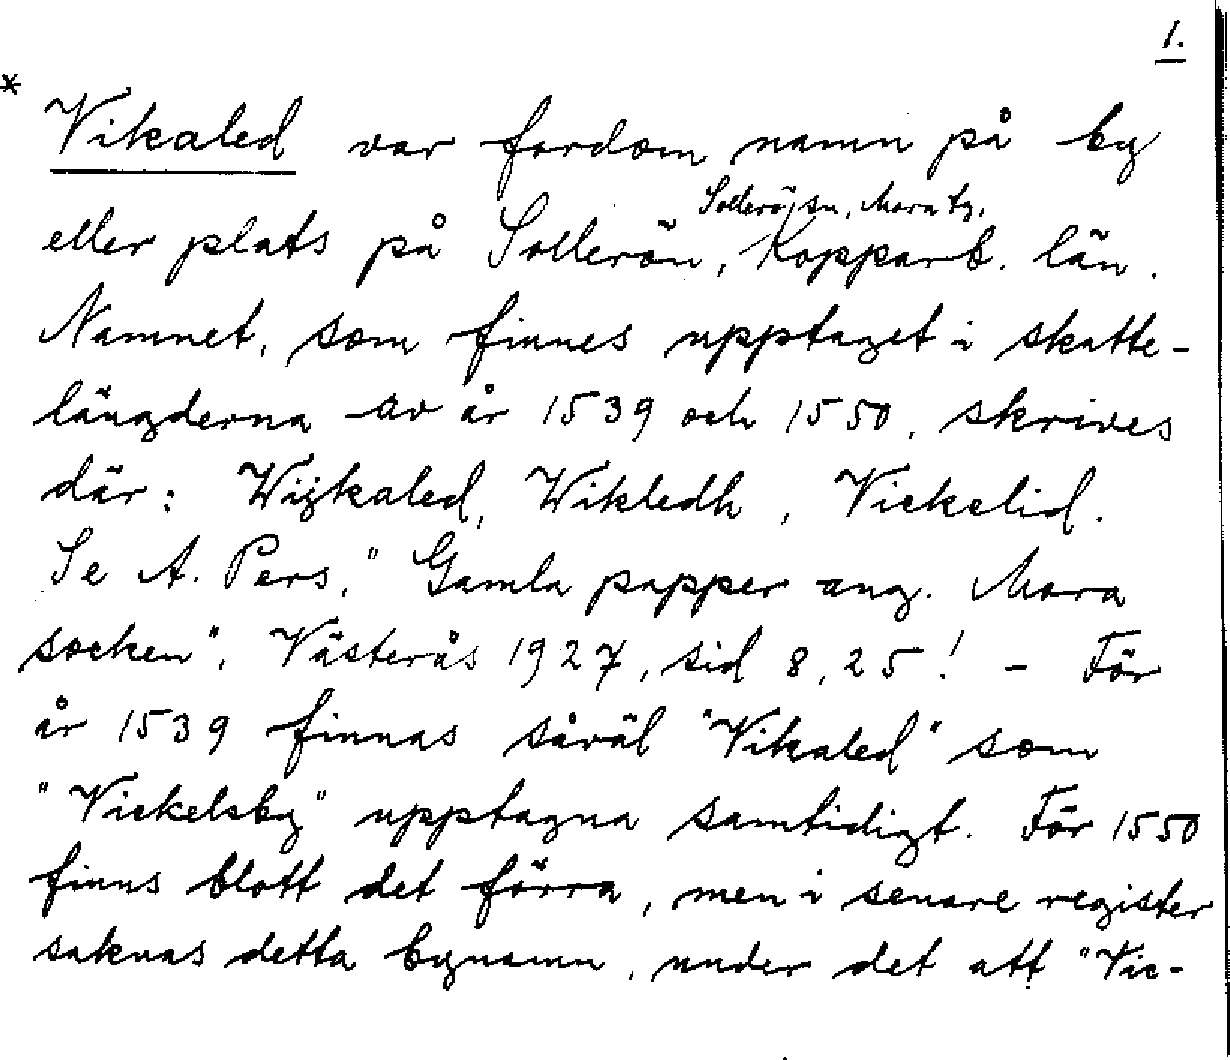 1.
* Vikaled var fordom namn på by
Sollerö sn, Mora tg,
eller plats på Sollerön, Kopparb. län.
Namnet, som finnes upptaget i skatte-
längderna av år 1539 och 1550, skrives
där: Wijkaled, Wikledh, Vickelid.
Se A. Pers, "Gamla papper ang. Mora
socken", Västerås 1927, sid 8, 25! - För
år 1539 finnas såväl "Vikaled" som
"Vickelsby" upptagna samtidigt. För 1550
finns blott det förra, men i senare register
saknas detta bynamn, under det att "Vic-